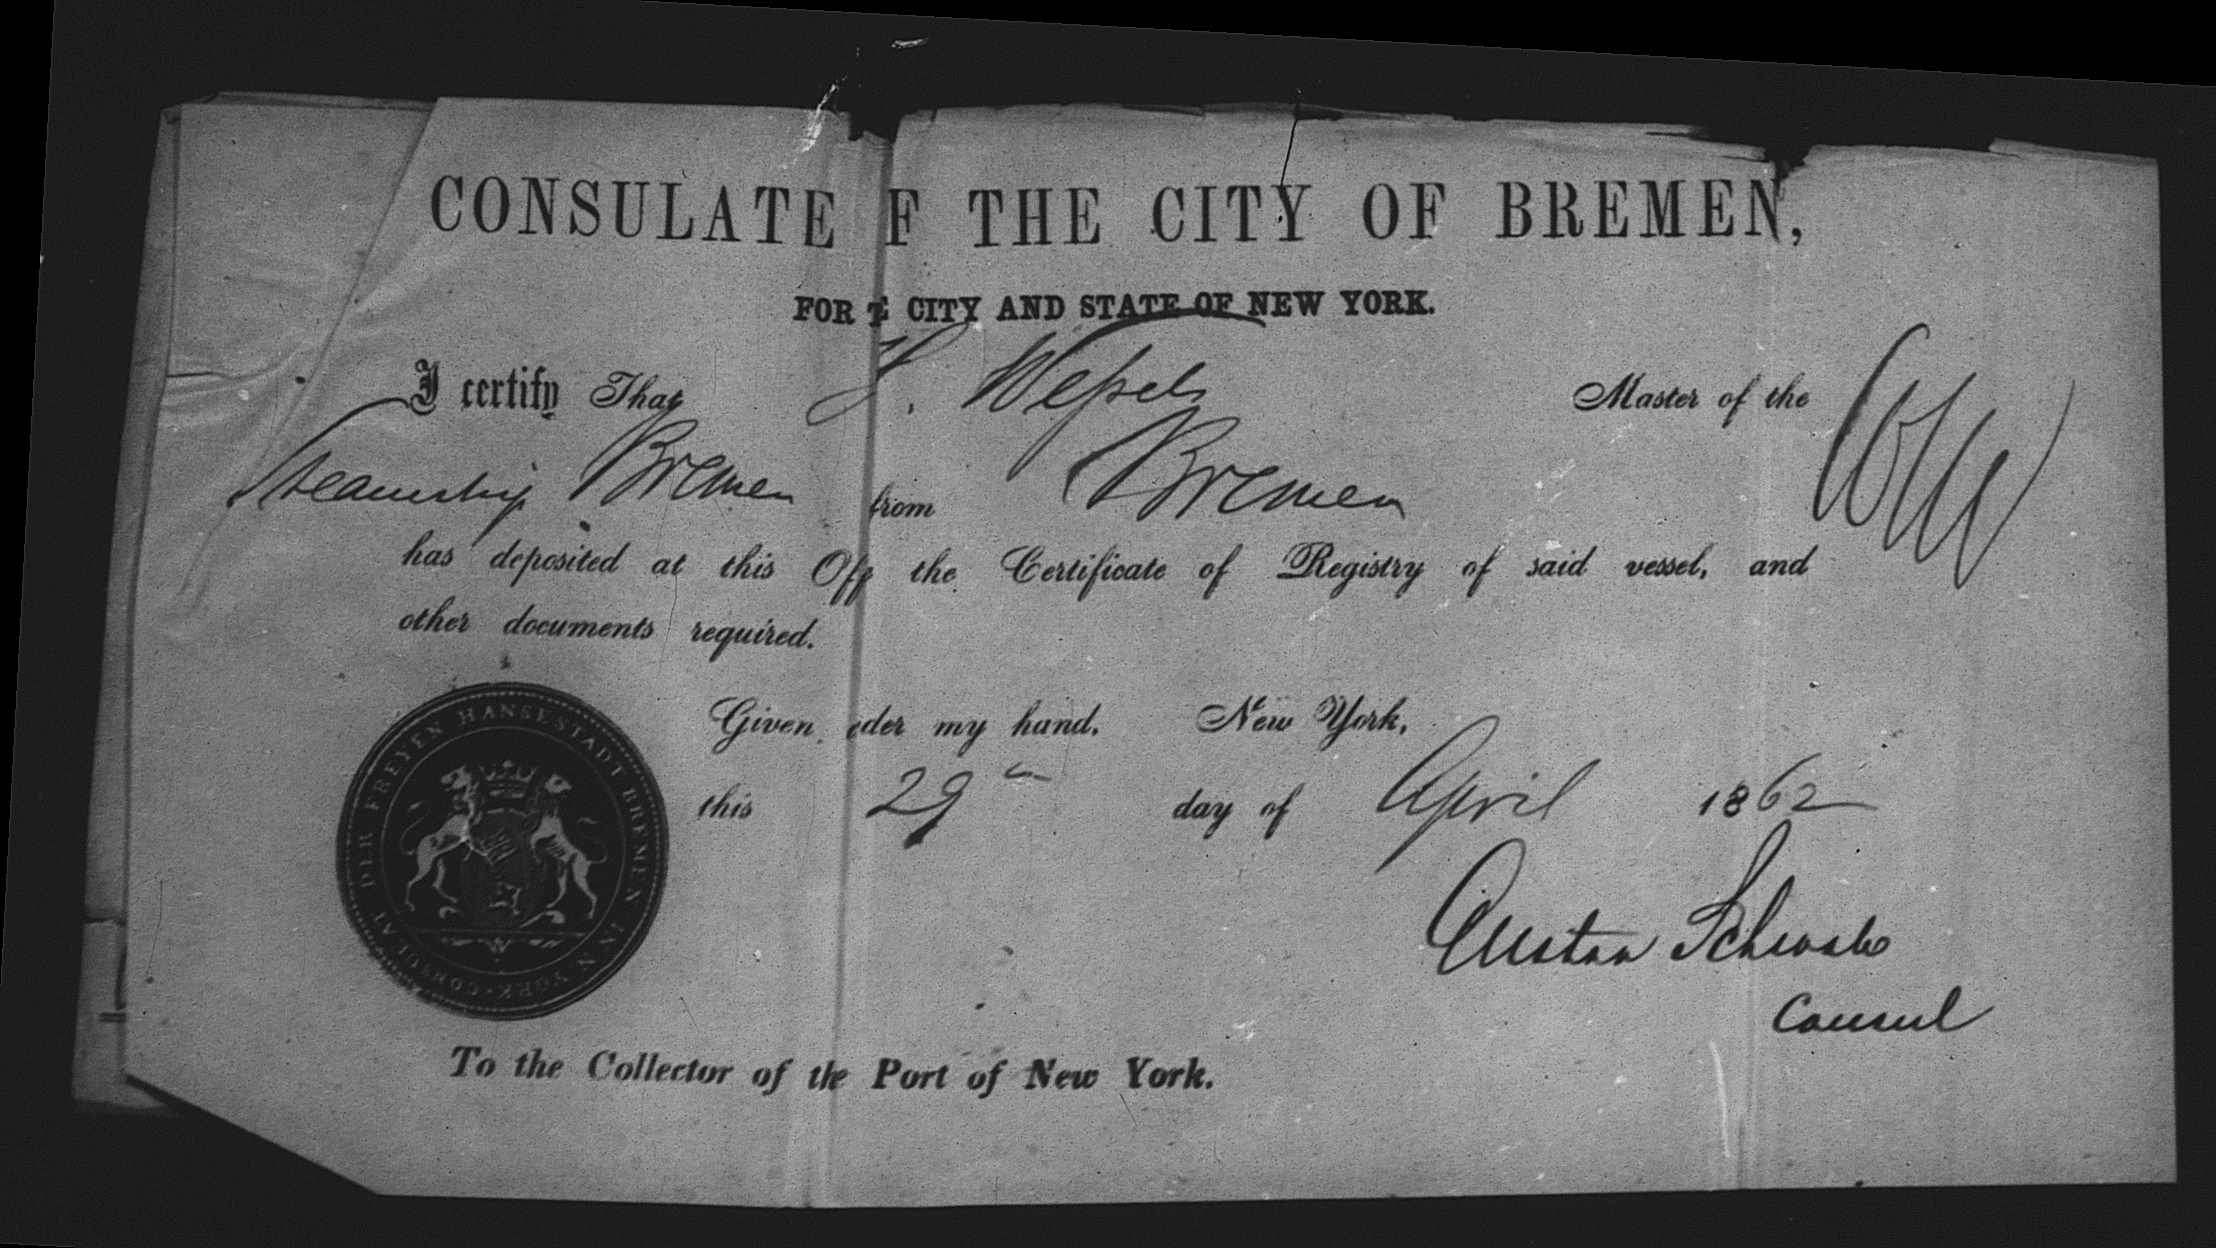 CONSULATE F THE CITY OF BREMEN,
FOR T E CITY AND STATE OF NEW YORK.
I certify That H. Wessels Master of the
Steamship Bremen from Bremen
has deposited at this Off the Certificate of Registry of said vessel, and
other documents required.
Given der my hand. New York,
this 29 day of April 1862
Gustav Schwab
Consul
CONSULAT DER FREYEN HANSESTADT BREMEN IN N. YORK
To the Collector of the Port of New York.